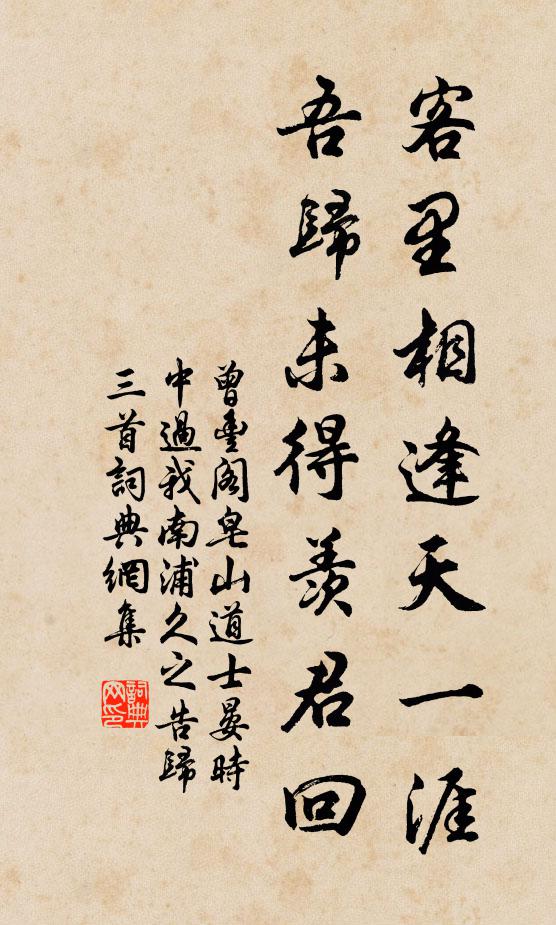 客里相逢天一涯
吾歸未得羨君回
曾豐閣皂山道士晏時
中過我南浦久之告歸
三首詞典網集
詞典
网印